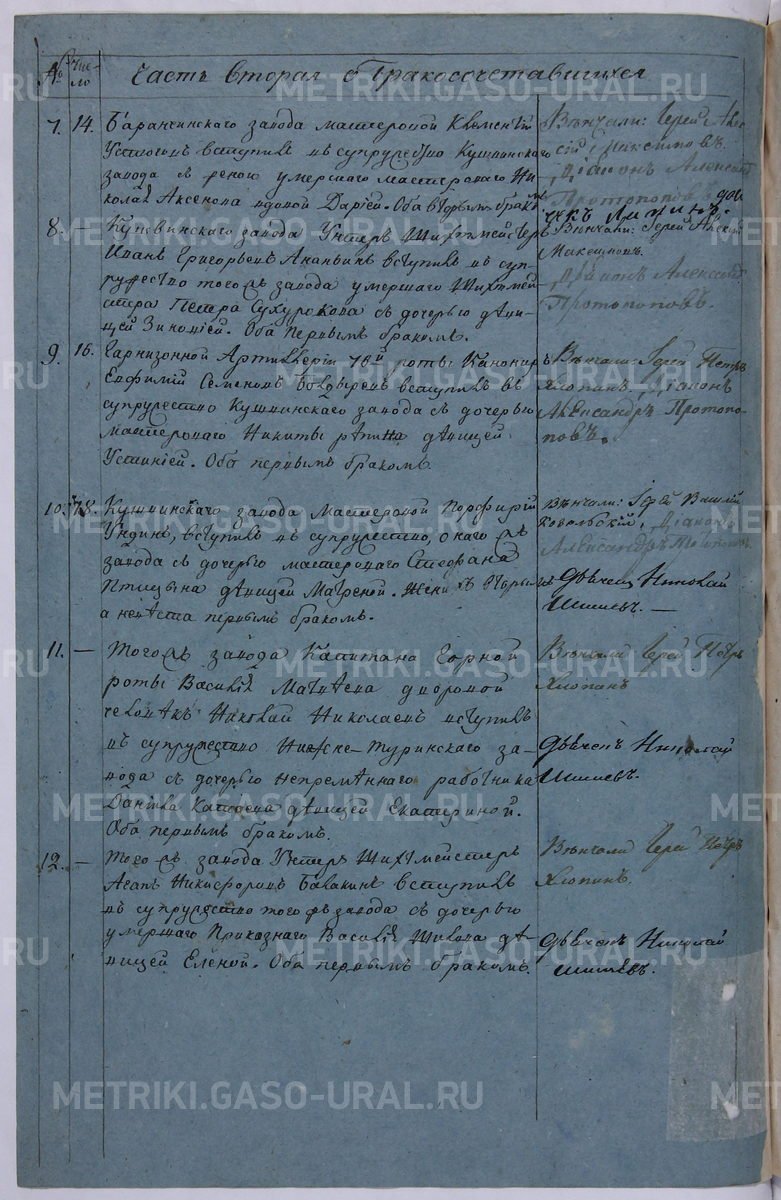 № Число Часть вторая о бракосочетавшихся
7. 14. Баранчинскаго завода мастеровой Климентій
Устюгов вступилъ въ супружество Кушвинскаго
завода съ умершаго мастероваго Ни-
колая Аксенова вдовой Дарьей. Оба вторымъ бракомъ.
Вѣнчали: Іерей Алек
сій Макетовъ.
Діаконъ Александръ
Протопоповъ
8. — Кушвинскаго завода Унтеръ Шихтмейстеръ
Иванъ Григорьевъ Ананьинъ вступилъ въ суп-
ружество тогожъ завода умершаго Шихтмей-
стера Петра Сухурокова съ дочерью дѣви-
цей Зиновіей. Оба первымъ бракомъ.
Вѣнчали: Іерей Алексій
Діаконъ Александръ
Протопоповъ.
9. 16. Гарнизонной Артиллеріи 70й роты Канониръ
Евфимій Семеновъ Болдыревъ вступилъ въ
супружество Кушвинскаго завода съ дочерью
мастероваго Никиты Рѣпина дѣвицей
Устиніей. Оба первымъ бракомъ.
Вѣнчали: Іерей Петръ
Хлопинъ, Діаконъ
Александръ Протопо-
повъ.
10. 18. Кушвинскаго завода мастеровой Порфирій
Ундинъ, вступилъ въ супружество, онагожъ
завода съ дочерью мастероваго Стефана
Птицына дѣвицей Матреной. Женихъ вторымъ
а невѣста первымъ бракомъ.
Вѣнчали: Іерей Василій
Діаконъ
Александръ Протопоповъ
Дьячекъ Николай
Шишевъ. —
11. — Тогожъ завода Капитана Горной
роты Василія Матвѣева дворовой
человѣкъ Николай Николаевъ вступилъ
въ супружество Нижне-Туринскаго за-
вода съ дочерью непремѣннаго работника
Даніила Катаева дѣвицей Екатериной.
Оба первымъ бракомъ.
Вѣнчали Іерей Петръ
Хлопинъ
Дьячекъ Николай
Шишевъ.
12. — Тогожъ завода Унтеръ Шихтмейстеръ
Асафъ Никифоровъ Балакинъ вступилъ
въ супружество тогожъ завода съ дочерью
умершаго Приказнаго Василія Шилова дѣ-
вицей Еленой. Оба первымъ бракомъ.
Вѣнчали Іерей Петръ
Хлопинъ.
Дьячекъ Николай
Шишевъ.
METRIKI.GASO-URAL.RU